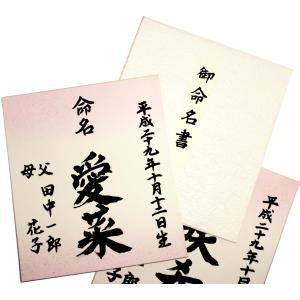 御命名書
平成二十九年十月十二日生
命名
愛菜
父 田中一郎
母 花子
平成二十九年十月